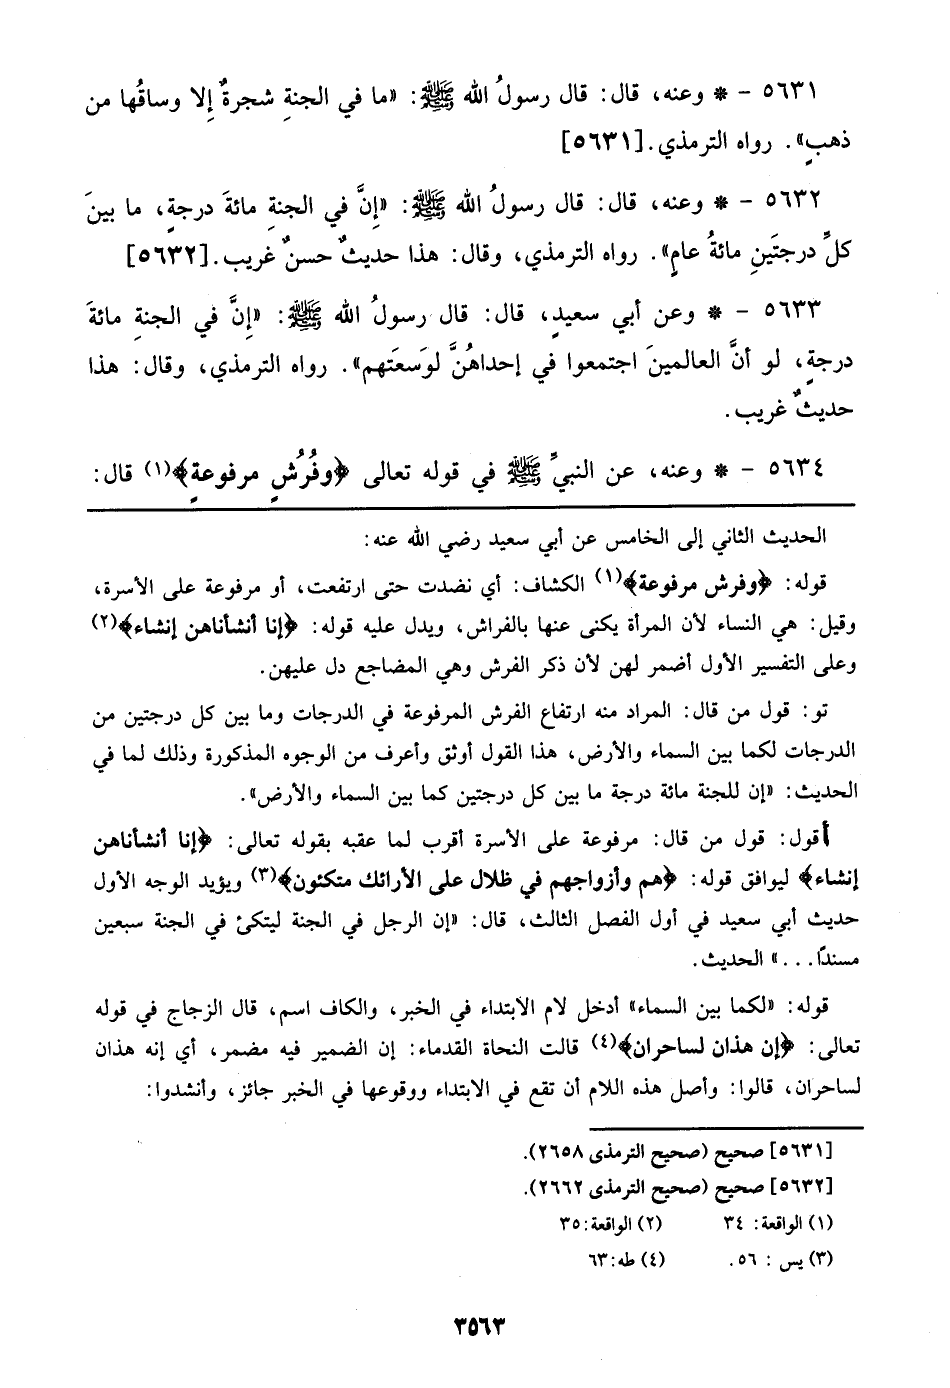 ٥٦٣١ – * وعنه، قال: قال رسولُ الله ﷺ: «ما في الجنةِ شجرةٌ إِلا وساقُها من
ذهبٍ». رواه الترمذي.[٥٦٣١]
٥٦٣٢ – * وعنه، قال: قال رسولُ الله ﷺ: «إِنَّ في الجنةِ مائةَ درجةٍ، ما بينَ
كلِّ درجتَينِ مائةُ عامٍ». رواه الترمذي، وقال: هذا حديثٌ حسنٌ غريب.[٥٦٣٢]
٥٦٣٣ – * وعن أبي سعيدٍ، قال: قال رسولُ الله ﷺ: «إِنَّ في الجنةِ مائةَ
درجةٍ، لو أنَّ العالمينَ اجتمعوا في إحداهُنَّ لوَسعَتهم». رواه الترمذي، وقال: هذا
حديثٌ غريب.
٥٦٣٤ – * وعنه، عن النبيِّ ﷺ في قوله تعالى ﴿وفُرُشٍ مرفوعةٍ﴾(١) قال:
الحديث الثاني إلى الخامس عن أبي سعيد رضي الله عنه:
قوله: ﴿وفرش مرفوعة﴾(١) الكشاف: أي نضدت حتى ارتفعت، أو مرفوعة على الأسرة،
وقيل: هي النساء لأن المرأة يكنى عنها بالفراش، ويدل عليه قوله: ﴿إنا أنشأناهن إنشاء﴾(٢)
وعلى التفسير الأول أضمر لهن لأن ذكر الفرش وهي المضاجع دل عليهن.
تو: قول من قال: المراد منه ارتفاع الفرش المرفوعة في الدرجات وما بين كل درجتين من
الدرجات لكما بين السماء والأرض، هذا القول أوثق وأعرف من الوجوه المذكورة وذلك لما في
الحديث: «إن للجنة مائة درجة ما بين كل درجتين كما بين السماء والأرض».
أقول: قول من قال: مرفوعة على الأسرة أقرب لما عقبه بقوله تعالى: ﴿إنا أنشأناهن
إنشاء﴾ ليوافق قوله: ﴿هم وأزواجهم في ظلال على الأرائك متكئون﴾(٣) ويؤيد الوجه الأول
حديث أبي سعيد في أول الفصل الثالث، قال: «إن الرجل في الجنة ليتكئ في الجنة سبعين
مسندًا...» الحديث.
قوله: «لكما بين السماء» أدخل لام الابتداء في الخبر، والكاف اسم، قال الزجاج في قوله
تعالى: ﴿إن هذان لساحران﴾(٤) قالت النحاة القدماء: إن الضمير فيه مضمر، أي إنه هذان
لساحران، قالوا: وأصل هذه اللام أن تقع في الابتداء ووقوعها في الخبر جائز، وأنشدوا:
[٥٦٣١] صحيح (صحيح الترمذى ٢٦٥٨).
[٥٦٣٢] صحيح (صحيح الترمذى ٢٦٦٢).
(١) الواقعة: ٣٤ (٢) الواقعة: ٣٥
(٣) يس : ٥٦. (٤) طه: ٦٣
٣٥٦٣